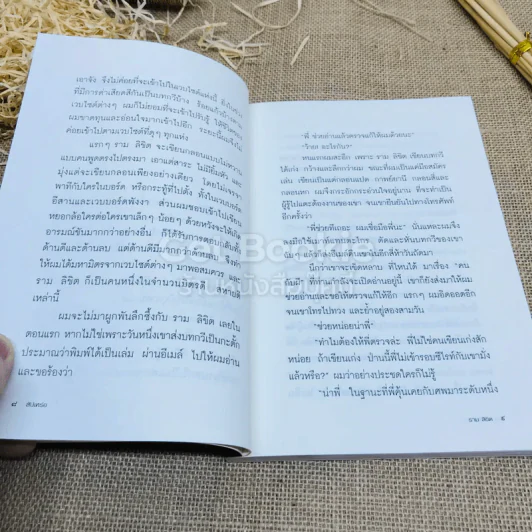 เอาจัง จึงไม่ค่อยที่จะเข้าไปในเวบไซต์แห่งนี้ ยิ่งในช่วง
ที่มีการด่าเสียดสีกันเป็นบทกวีบ้าง ร้อยแก้วบ้างตาม
เวบไซต์ต่างๆ ผมก็ไม่ยอมที่จะเข้าไปรับรู้
ผมขาดทุนและอ่อนใจมากเข้าไปอีก ระยะนี้ผมจึงไม่
ค่อยเข้าไปตามเวบไซต์ที่ดุๆ ทุกแห่ง
แรกๆ ราม ลิขิต จะเขียนกลอนแบบไม่ความ
แบบคนพูดตรงไปตรงมา เอาแต่สาระ ไม่ยืมตัว และ
มุ่งแต่จะเขียนกลอนเพียงอย่างเดียว โดยไม่เจรจา
พาทีกับใครในบอร์ด หรือกระทู้ที่ไปตั้ง ทั้งในเวบบอร์ด
อีสานและเวบบอร์ดพังงา ส่วนผมชอบเข้าไปเขียน
หยอกล้อใครต่อใครเขาเล็กๆ น้อยๆ ด้วยหวังจะให้เกิด
อารมณ์ขันมากกว่าอย่างอื่น ก็ได้รับการตอบเต้นทั้ง
ด้านดีและด้านลบ แต่ด้านดีมีมากกว่าด้านลบ จึงทำ
ให้ผมได้มหามิตรจากเวบไซต์ต่างๆ มาพอสมควร
ราม ลิขิต ก็เป็นคนหนึ่งในจำนวนมิตรดี สหาย
เหล่านี้
ผมจะไม่มาผูกพันลึกซึ้งกับ ราม ลิขิต เลยใน
ตอนแรก หากไม่ใช่เพราะวันหนึ่งเขาส่งบทกวีเป็นกะตั้ก
ประมาณว่าพิมพ์ได้เป็นเล่ม ผ่านอีเมล์ ไปให้ผมอ่าน
และขอร้องว่า
๘
"พี่ ช่วยอ่านแล้วตรวจแก้ให้ผมด้วยนะ"
"โว้ย อะไรกัน?"
ผมแทงผมสะอึก เพราะ ราม ลิขิต เขียนบทกวี
ได้เก่ง กว้างและลึกกว่าผม ขณะที่ผมเป็นแค่มือสมัคร
เล่น เขียนเป็นแค่กลอนแปด กาพย์ยานี กลอนสี่และ
กลอนหก ผมจึงกระอักกระอ่วนใจอยู่นาน ที่จะทำเป็น
ผู้รู้ไปแตะต้องงานของเขา จนเขายืนยันไปทางโทรศัพท์
อีกครั้งว่า
"พี่ช่วยทีเถอะ ผมเชื่อมือพี่นะ" นั่นแหละผมจึง
ลงมือใช้เมาส์
นึกว่าเขาจะเข็ดหลาบ ที่ไหนได้ มาเรื่อง "คน
ที่ว่างเปล่า" ที่ท่านกำลังจะเปิดอ่านอยู่นี้ เขาก็ยังส่งมาให้ผม
ช่วยอ่านและขอให้ตรวจแก้ให้อีก แรกๆ ผมอิดออดอีก
จนเขาโทรไปทวง และย้ำอยู่สองสามวัน
"ช่วยหน่อยน่าพี่"
"ทำไมต้องให้พี่ตรวจล่ะ พี่ไม่ใช่คนเขียนเก่งสัก
หน่อย ถ้าเขียนเก่ง ป่านนี้พี่ไม่เข้ารอบซีไรท์กับเขามั่ง
แล้วหรือ?" ผมว่าอย่างประชดใครก็ไม่รู้
"น่าพี่ ในฐานะที่พี่คุ้นเคยกับศพมาระดับหนึ่ง
ราม ลิขิต ๙